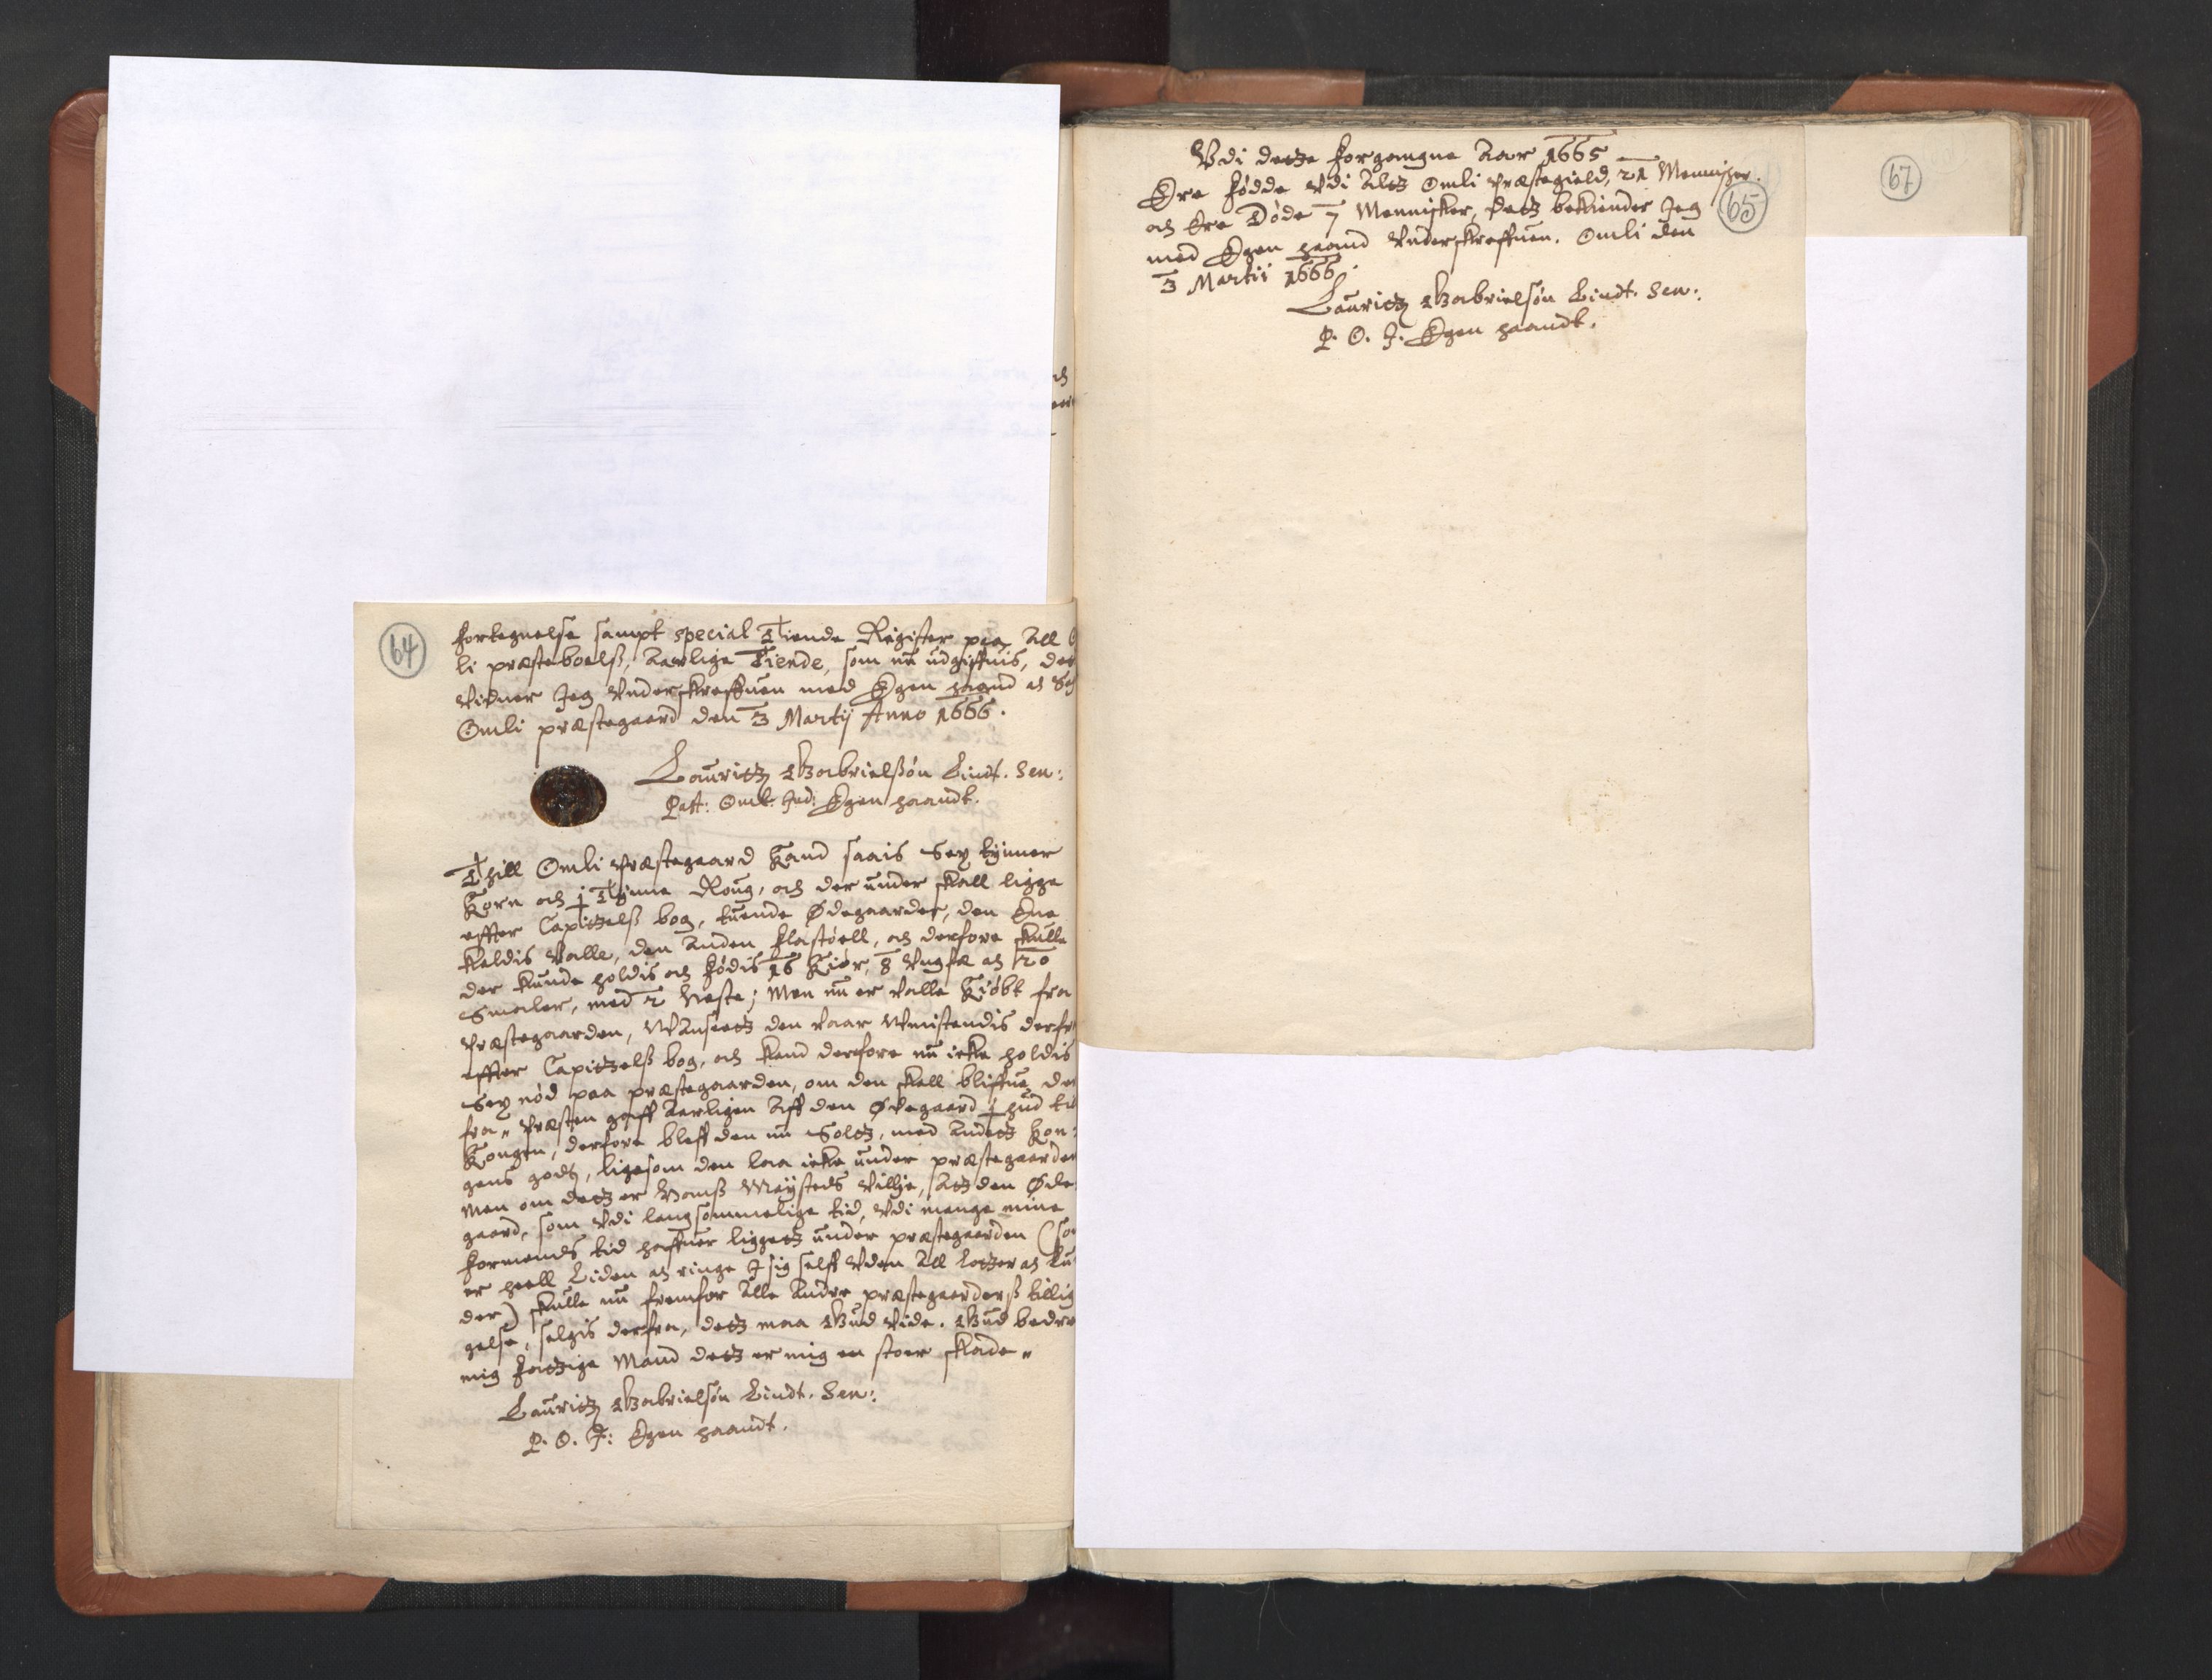 64
fortegnelse sampt special Tiende Register paa All
li præsteboelß, Aarlige Tiende, som nu udgiffuis, det
Vidner Jeg Underskreffuen med Egen haand och
Omli præstegaard den 3 Martij Anno 1666.
Lauritz Gabrielßøn Lindt. Sen:
Past: Oml: Ind: Egen haandt.
Thill Omli Præstegaard Kand saais Sex tynner
Korn och ½ Tynne Roug, och der under skall ligge
effter Capitzelß bog, tuende Ødegaarder, den Ene
Kaldis Valle, den Anden Flastøell, och derfore skulle
der kunde holdis och fødis 16 Kiør, 8 Ungfæ och 20
Smaler, med 2 Heste; Men nu er Valle Kiøbt fra
Præstegaarden, Uanseetz den vaar Umistendis derfra
effter Capitzelß bog, och kand derfore nu icke holdis
Sex nød paa præstegaarden, om den skall bliffue der
fra, Præsten gaff Aarligen Aff den Ødegaard ½ hud til
Kongen, derfore bleff den nu Soltz, med Andetz Kon:
gens godtz, ligesom den laa icke under præstegaarden
Men om detz er Hanß Maÿsteds villje, Atz den Øde
gaard, som Udi langsommelige tid, Udi mange mine
formends tid haffuer liggetz under præstegaarden (som
er heell Liden och ringe I sig self Uden All Lotzer och Lun
der) skulle nu fremfor Alle Andre præstegaarderß tillig
gelse, selgis derfra, detz maa Gud Vide. Gud bedre
mig fattige Mand detz er mig en stoer skade.
Lauritz Gabrielsøn Lindt. Sen:
P. O. I: Egen haandt.
Udi dette forgangne Aar 1665
Ere fødde Udi Altz Omli Præstegield, 21 Mennisker.
och Ere Døde 7 Mennisker, Detz bekiender Jeg
med Egen haand Underskreffuen. Omli den
3 Martii 1666.
Lauritz Gabrielsøn Lindt. Sen:
P. O. I. Egen haandt.
65
67